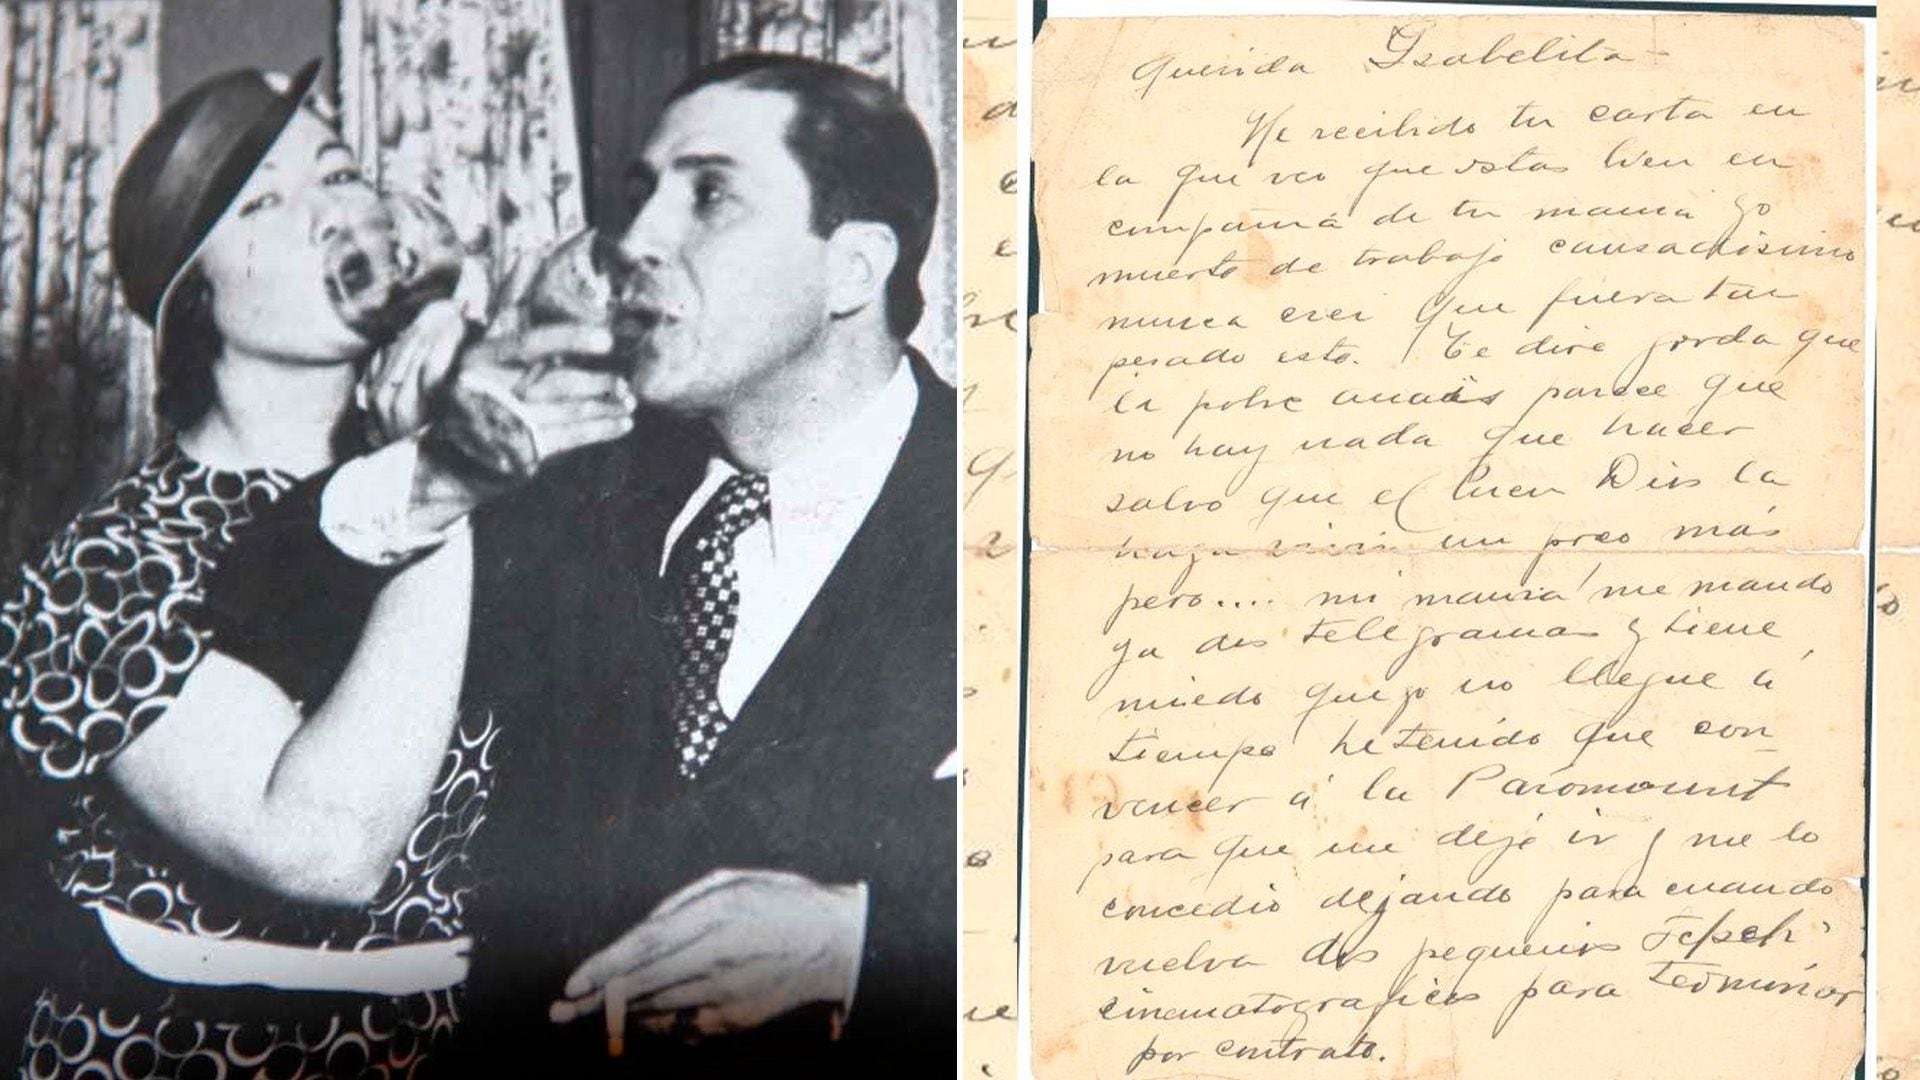 Querida Isabelita -
He recibido tu carta en
la que veo que estas bien en
compañia de tu mama yo
muerto de trabajo cansadisimo
nunca crei que fuera tan
pesado esto. Te dire gorda que
la pobre anais parece que
no hay nada que hacer
salvo que el buen Dios la
haga vivir un poco más
pero.... mi mamá me mando
ya dos telegramas y tiene
miedo que yo no llegue á
tiempo he tenido que con
vencer á la Paramount
para que me deje ir y me lo
concedio dejando para cuando
vuelva dos pequeños
cinematograficos para terminar
por contrato.